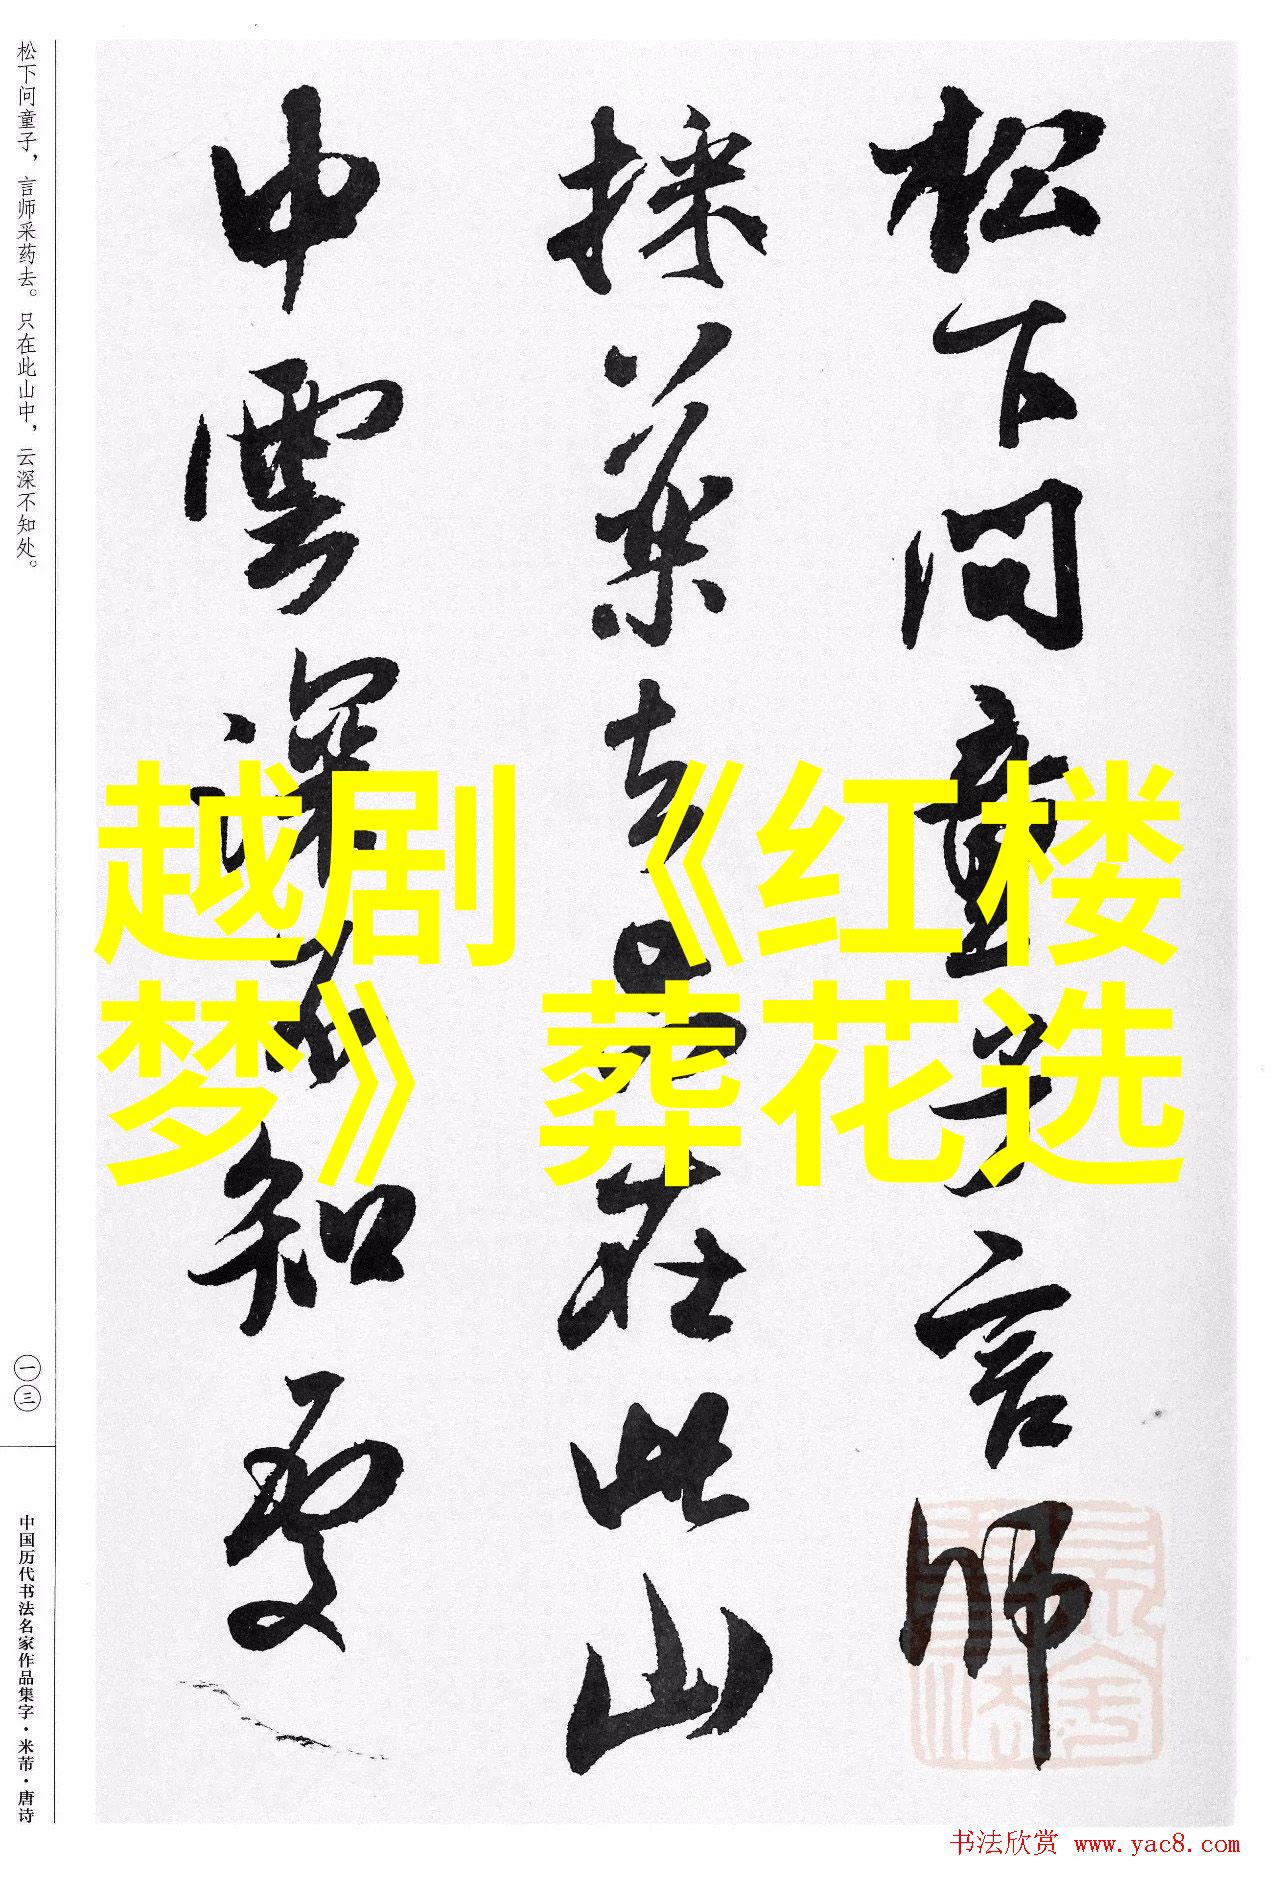 松下问童子，言师采药去。只在此山中，云深不知处。
一三
中国历代书法名家作品集字·米芾·唐诗
松下问童子言师
採药去只在此山
中雲深不知处
越剧《红楼
梦》葬花选
书法欣赏 www.yac8.com